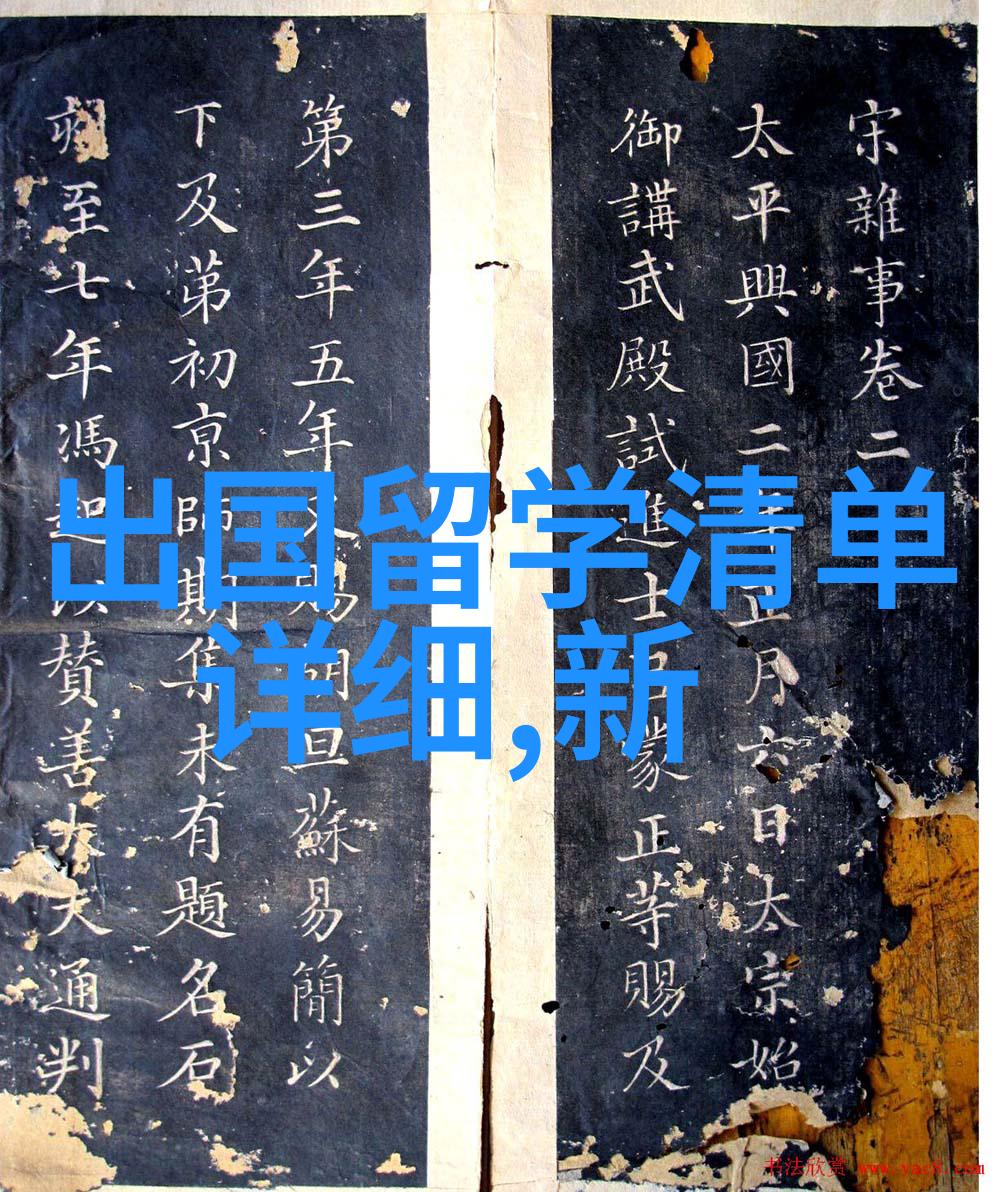 宋雜事卷二
太平興國二年正月六日太宗始
御講武殿試進士呂蒙正等賜及
第三年五年又賜胡旦蘇易簡以
下及第初京師期集未有題名石
刻至七年馮起以贊善大夫通判
出国留学清单
详细,新
书法欣赏 www.yac8.com